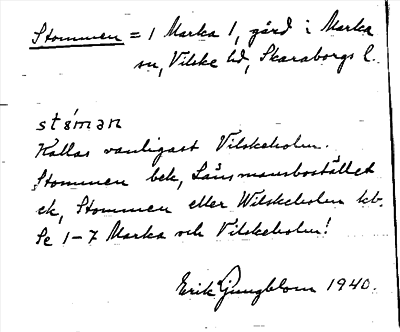 Stommen = 1 Marka 1, gård i Marka
sn, Vilske hd, Skaraborgs l.
stóman
Kallas vanligast Vilskeholm.
Stommen bek, Länsmansbostället
ek, Stommen eller Wilskeholm kb.
Se 1-7 Marka och Vilskeholm!
Erik Ljungblom 1940.